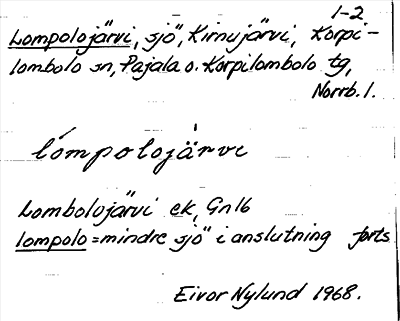 1-2
Lompolojärvi, sjö, Kirnujärvi, Korpi-
lombolo sn, Pajala o. Korpilombolo tg,
Norrb. l.
lómpolojä̀rvi
Lombolojärvi ek, Gnl6
lompolo = mindre sjö i anslutning forts
Eivor Nylund 1968.